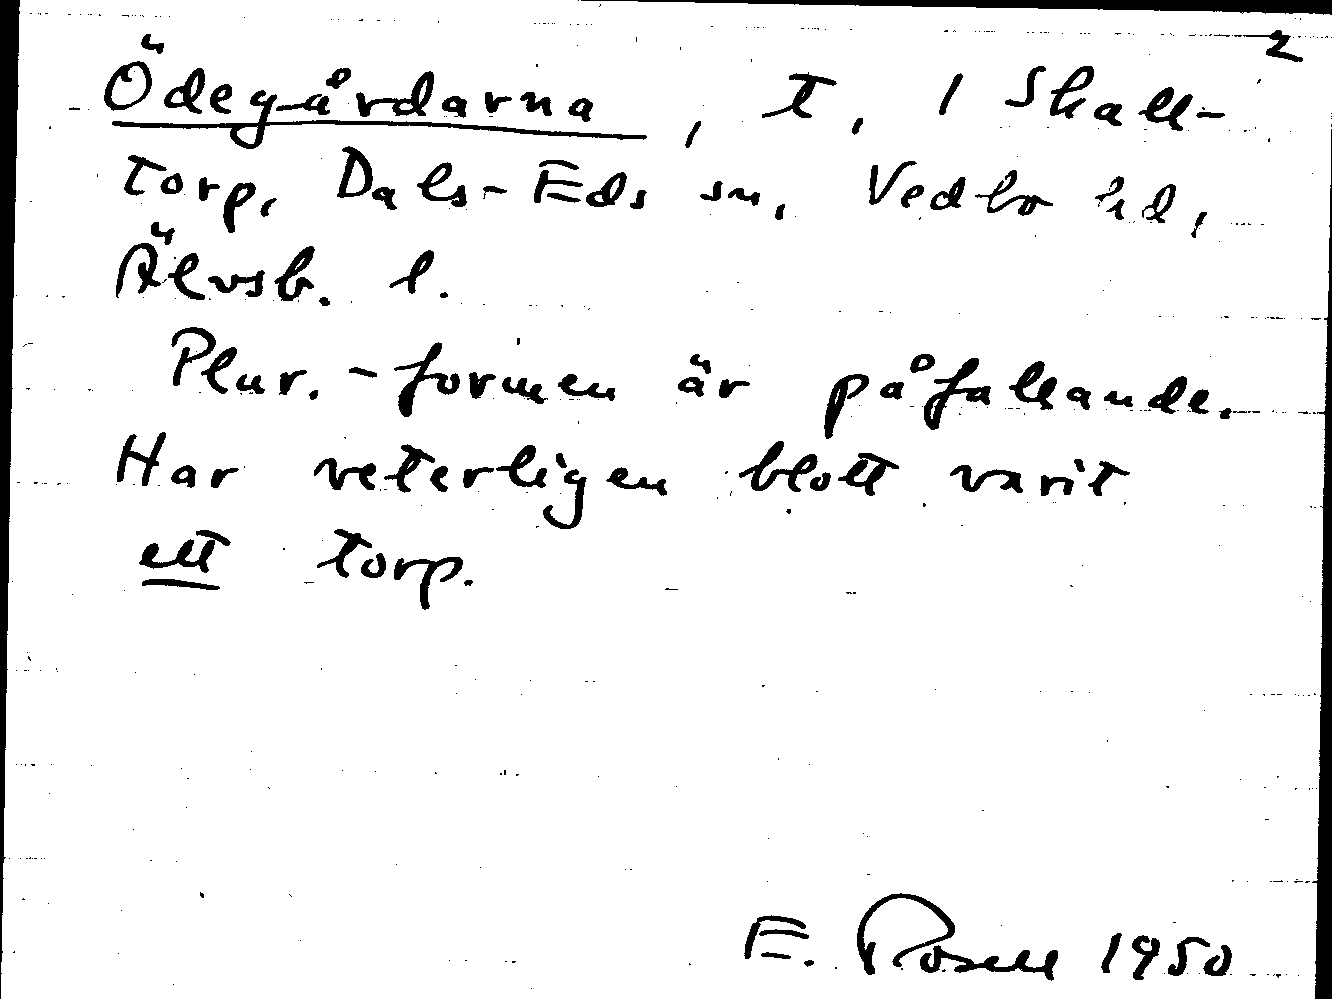 2
Ödegårdarna, t, 1 Skall-
torp, Dals-Eds sn, Vedbo hd,
Älvsb. l.
Plur.-formen är påfallande.
Har veterligen blott varit
ett torp.
E. Rosell 1950